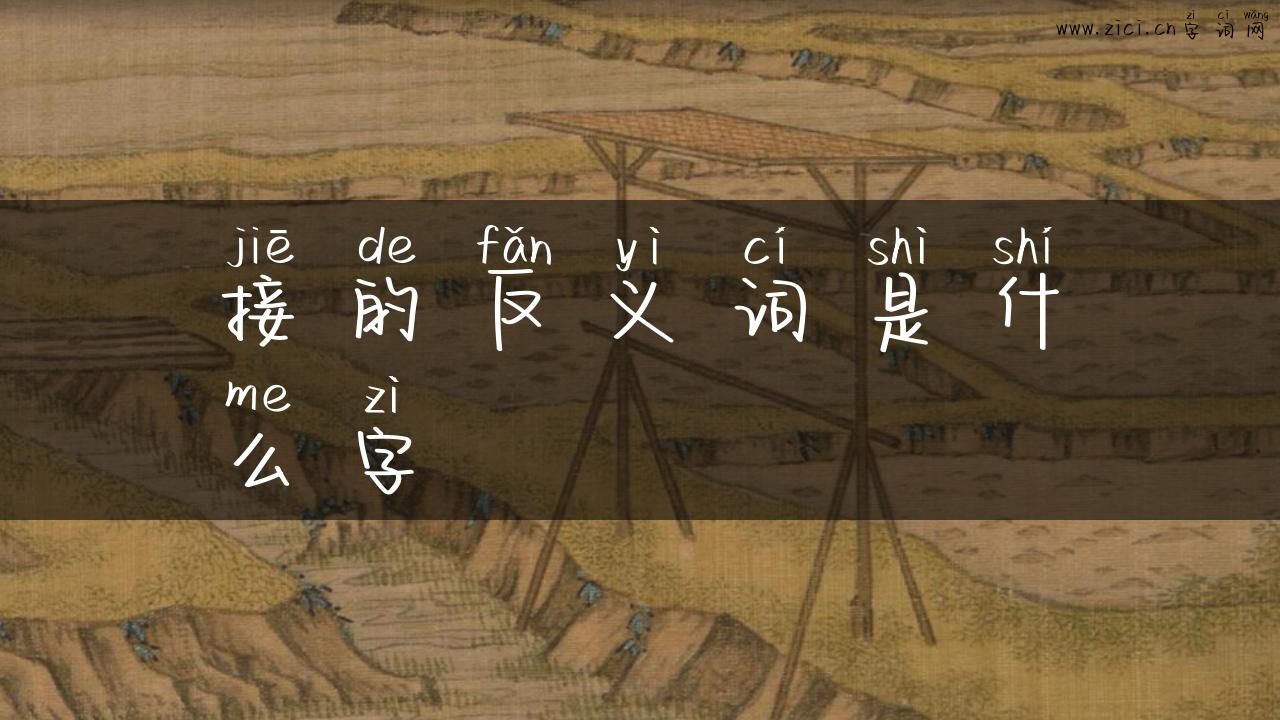 zì cí wǎng
www.zici.cn 字词网
jiē de fǎn yì cí shì shí
接的反义词是什
me zì
么字